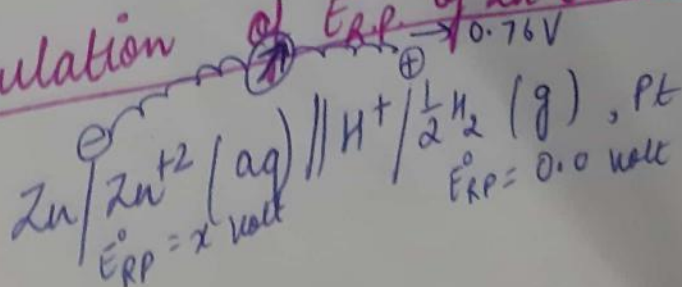 ulation of E R.P. of → 0.76V
⊖ ⊕
Zn/Zn+2 (aq) // H+/ 1/2 H2 (g), Pt
E°RP = x volt E°RP = 0.0 volt